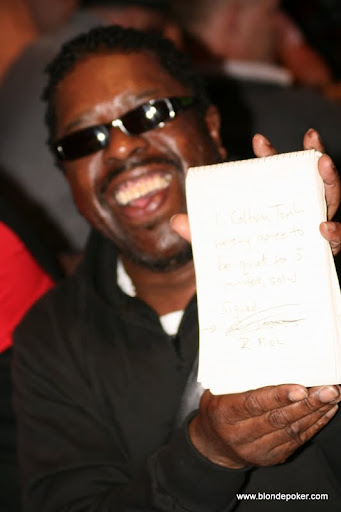 I, Colton
hereby agree to
be quiet for 5
minutes, solid
Signed
www.blondepoker.com